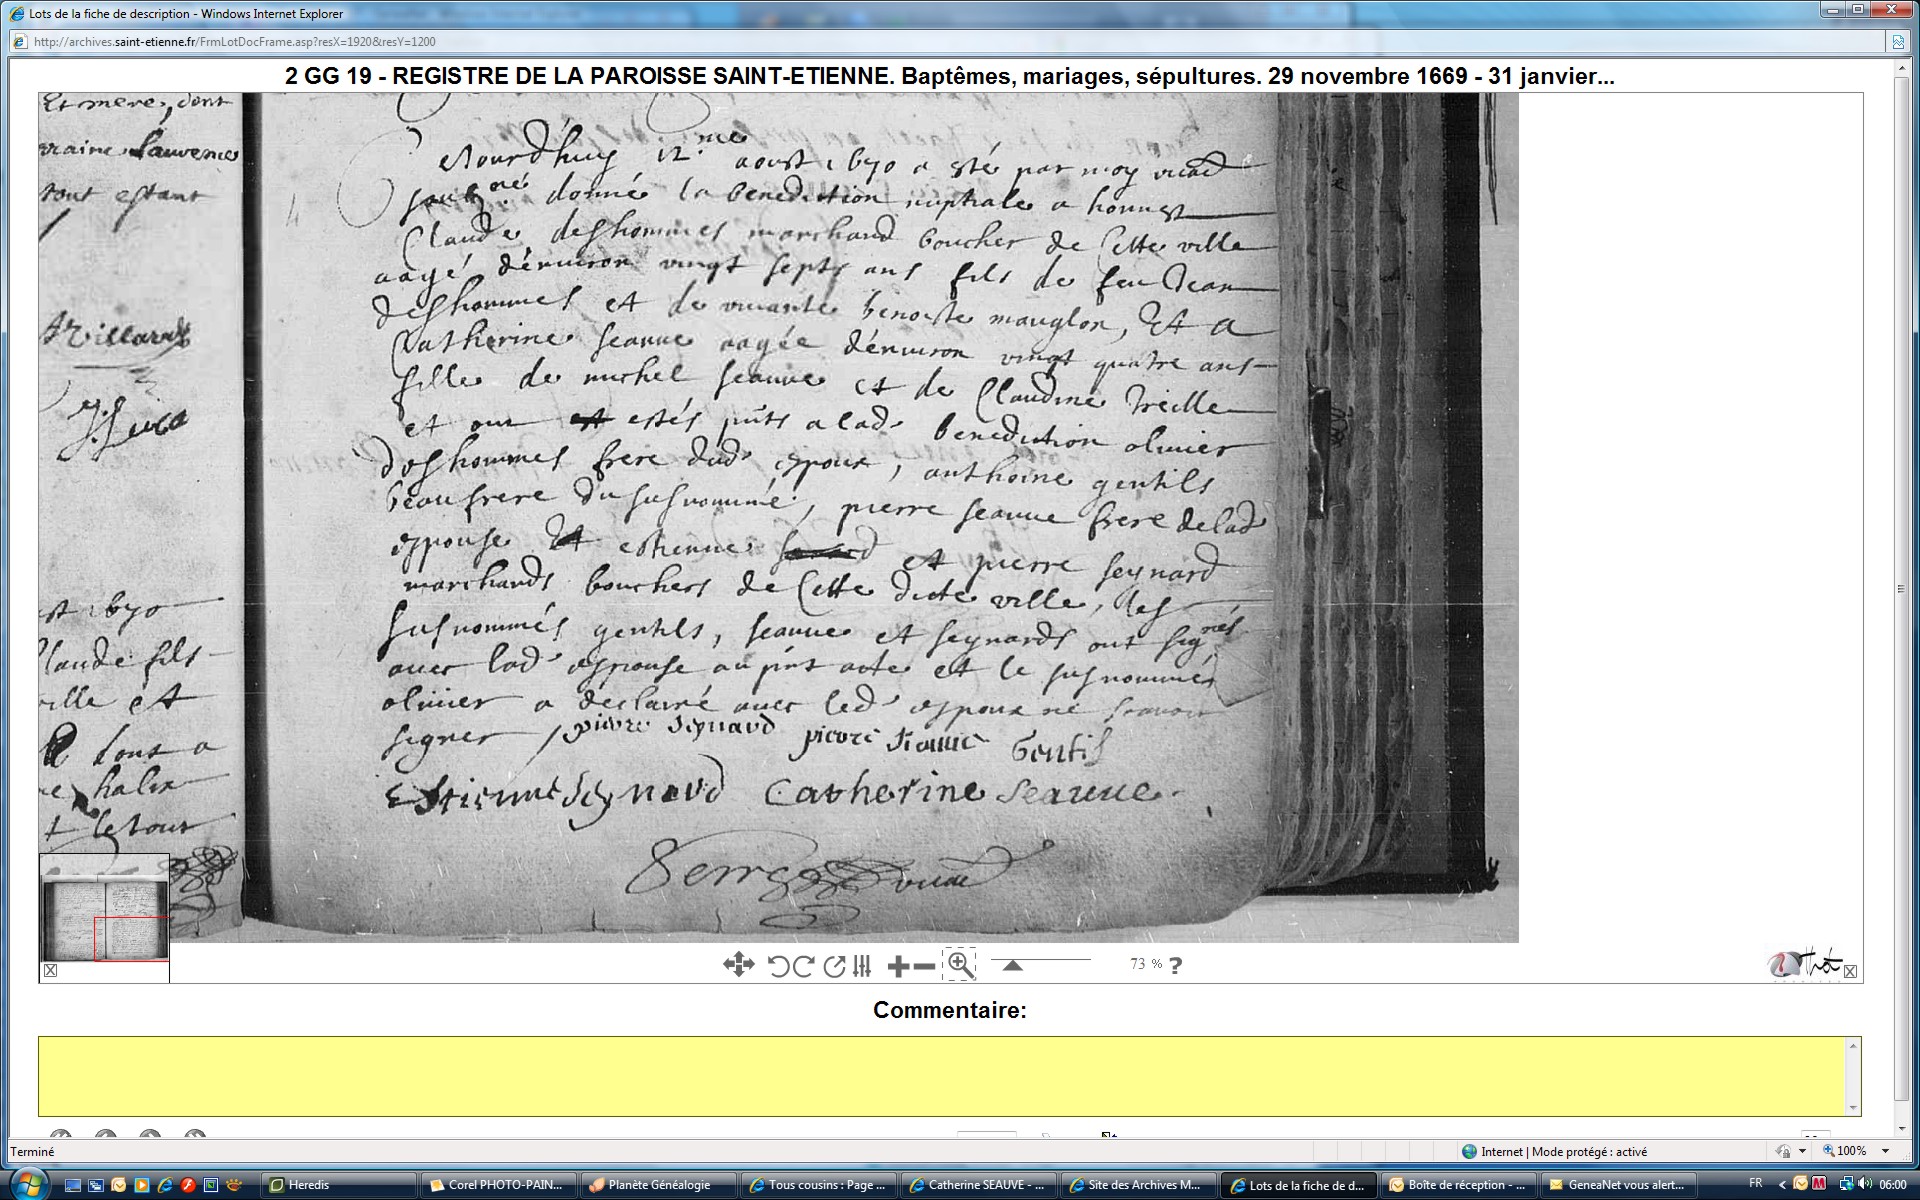 Lots de la fiche de description - Windows Internet Explorer
http://archives.saint-etienne.fr/FrmLotDocFrame.asp?resX=1920&resY=1200
2 GG 19 - REGISTRE DE LA PAROISSE SAINT-ETIENNE. Baptêmes, mariages, sépultures. 29 novembre 1669 - 31 janvier...
Et mere, dont
tout estant
st 1670
Claude fils
ville et
dont a
12.me aoust 1670 a esté par moy vicaire
donné la benediction nuptiale a honnest
Claude deshommes marchand boucher de Cette ville
aagé d'environ vingt septs ans fils de feu Jean
deshommes et de vivante benoiste mauglon, Et a
Catherine seauve aagée d'environ vingt quatre ans
fille de michel seauve et de Claudine treille
et ont estés pnts a lad. benediction olivier
deshommes frere dud. espoux, anthoine gentils
beaufrere du susnommé, pierre seauve frere de lad
espouse Et estienne et pierre seynard
marchands bouchers de Cette dicte ville, les
susnommés gentils, seauve et seynards ont signés
avec lad. espouse au pnt acte et le susnommé
olivier a déclairé avec led. espoux ne scavoir
signer
pierre seynard pierre seauve Gentil
Estienne Seynard Catherine Seauve
73 % ?
Commentaire:
Terminé
Internet | Mode protégé : activé
100%
Heredis
Corel PHOTO-PAIN...
Planète Généalogie
Tous cousins : Page ...
Catherine SEAUVE - ...
Site des Archives M...
Lots de la fiche de d...
Boîte de réception - ...
GeneaNet vous alert...
FR
06:00